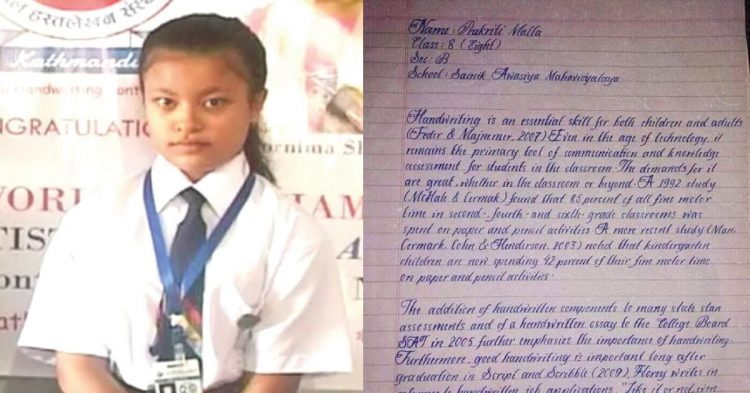 ल हस्तलेखन संस्
Kathmandu
Handwriting Cont
NGRATULATI
ornima Sh
WOR
IAM
TIST
A
ont
N
ath
Name : Prakriti Malla
Class : 8 (Eight)
Sec : B
School : Sainik Awasiya Mahavidyalaya
Handwriting is an essential skill for both children and adults
(Feder & Majnemer, 2007) Even in the age of technology, it
remains the primary tool of communication and knowledge
assessment for students in the classroom The demands for it
are great, whether in the classroom or beyond. A 1992 study
(McHale & Cermak) found that 85 percent of all fine motor
time in second- fourth- and sixth- grade classrooms was
spent on paper and pencil activities A more recent study (Marr,
Cermark, Cohn & Henderson, 2003) noted that kindergarten
children are now spending 42 percent of their fine motor time
on paper and pencil activities.
The addition of handwritten components to many state stan
assessments and of a handwritten essay to the College Board
SAT in 2005 further emphasis the importance of handwriting
Furthermore, good handwriting is important long after
graduation in Script and Scribble (2009), Florey writes in
to handwritten job applications, "Like it or not, even